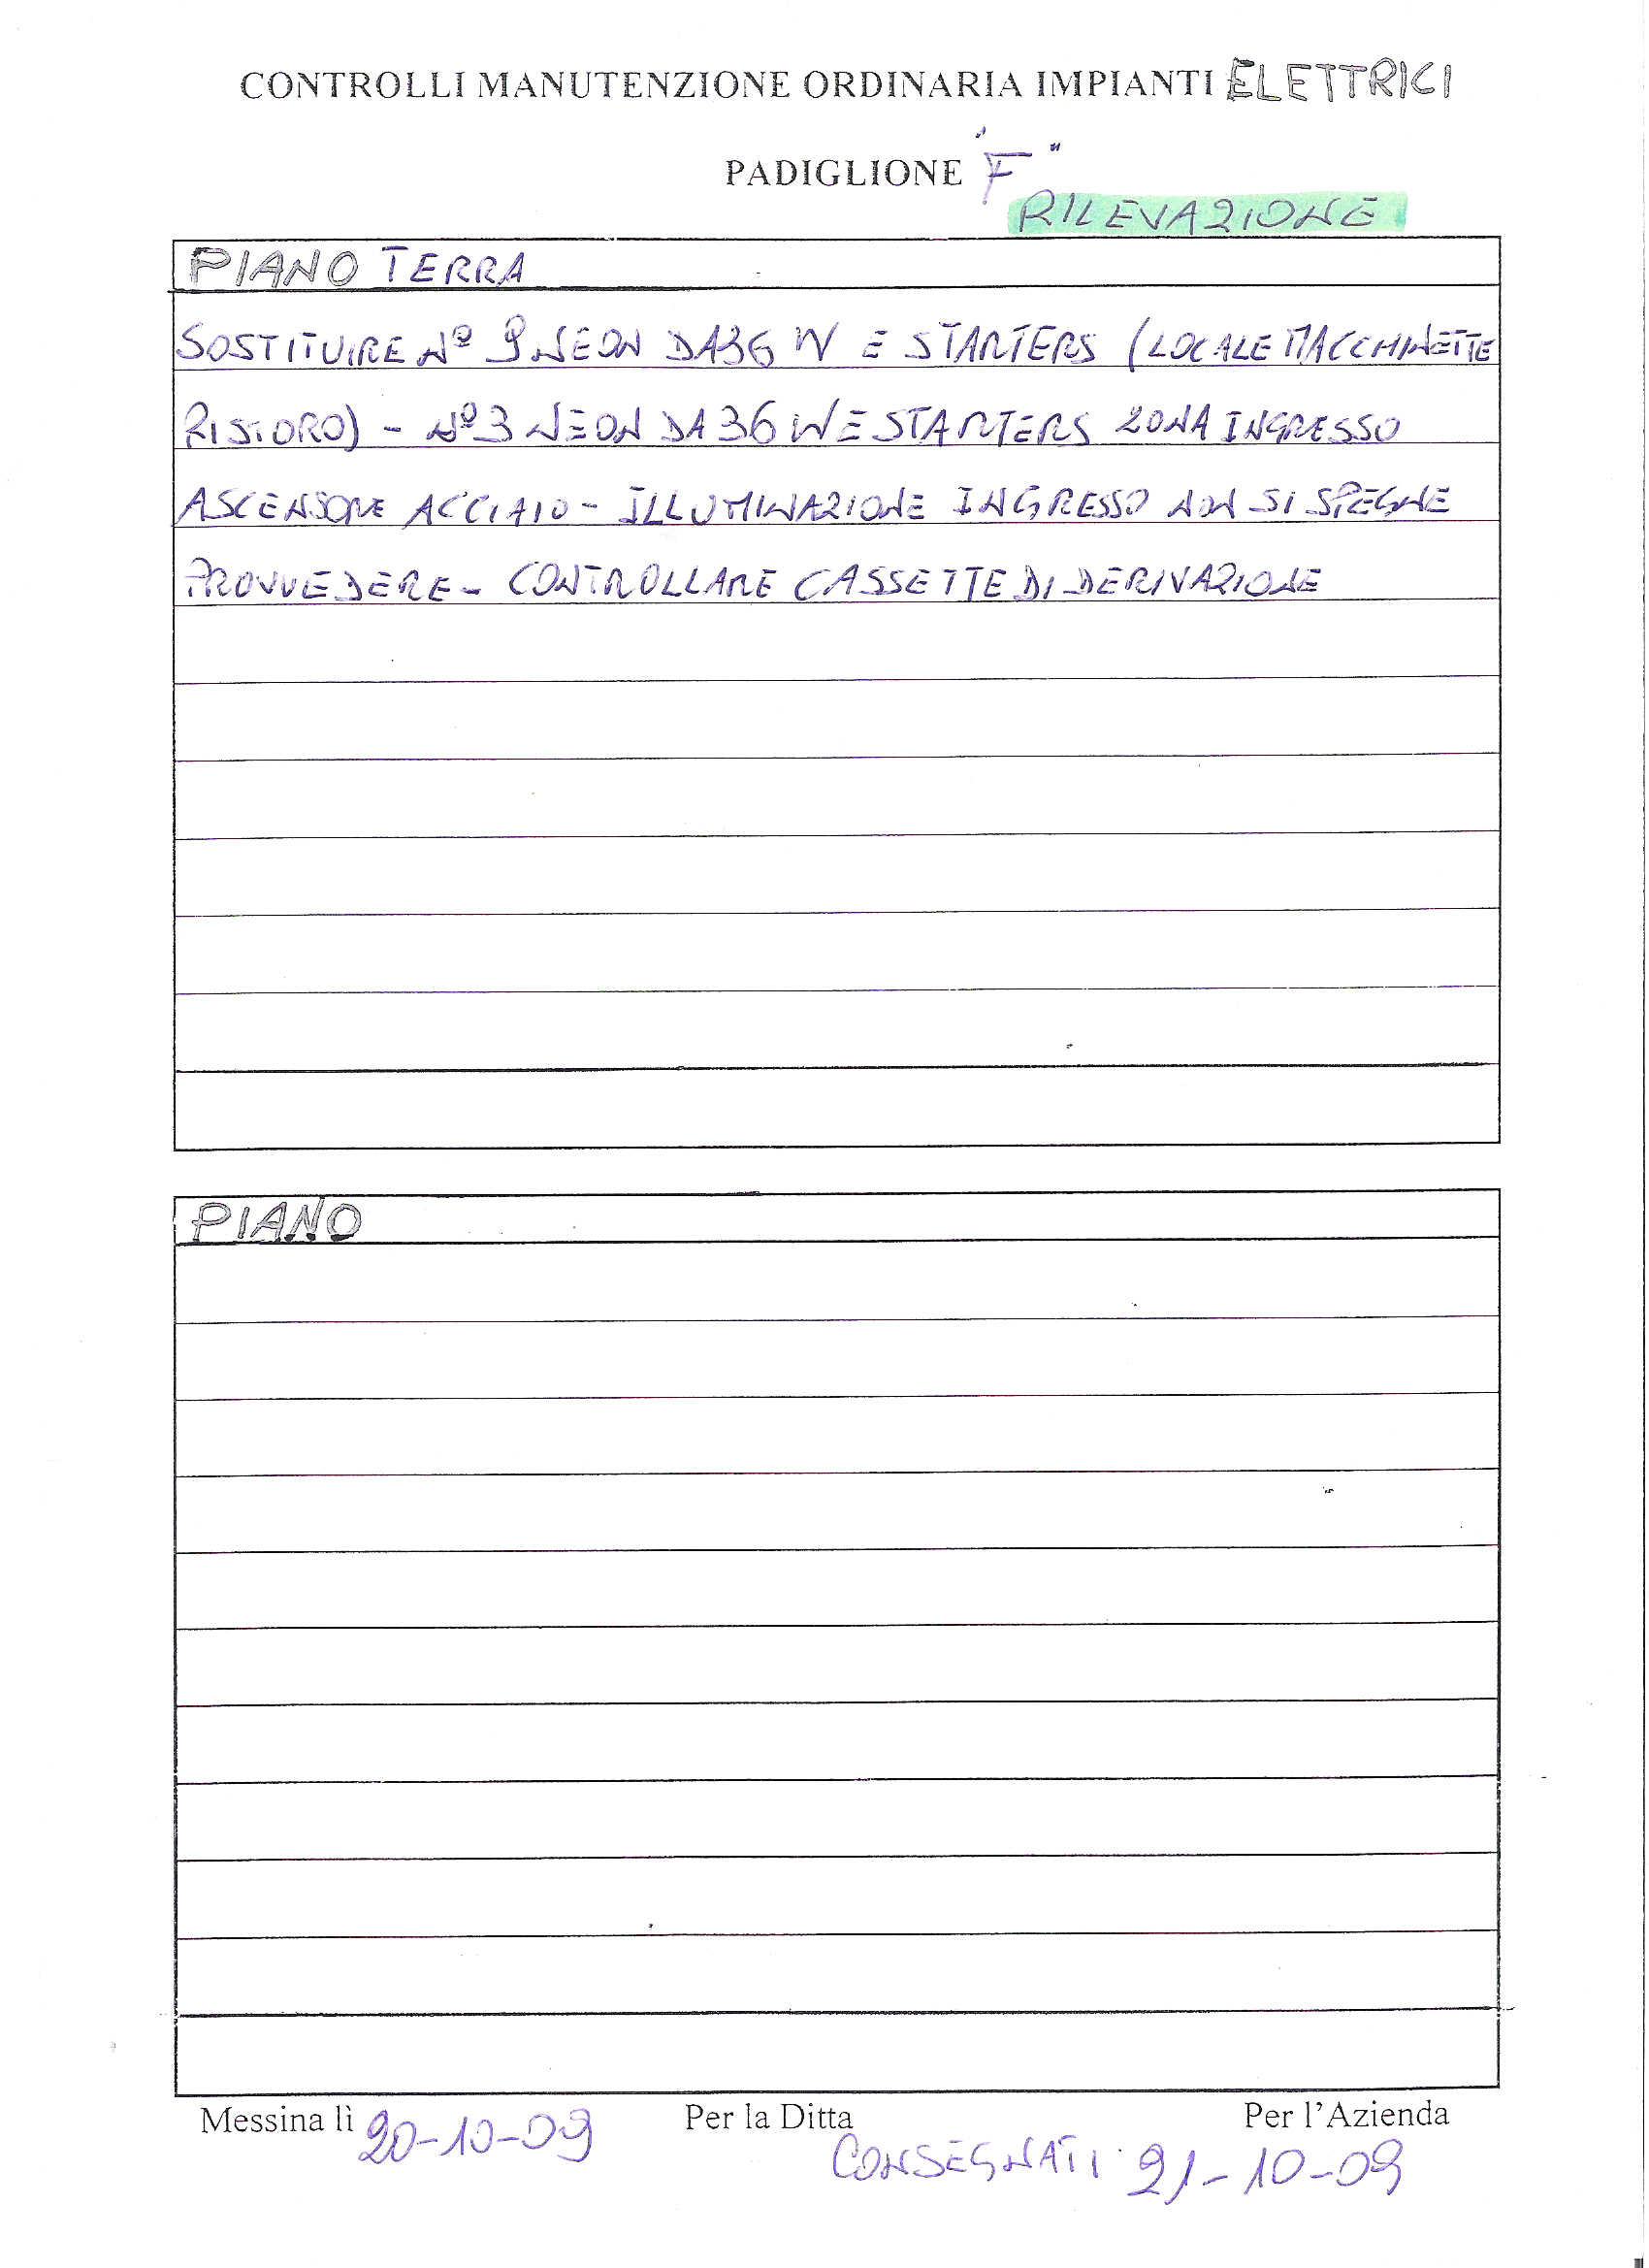 CONTROLLI MANUTENZIONE ORDINARIA IMPIANTI ELETTRICI
PADIGLIONE "F"
RILEVAZIONE
PIANO TERRA
SOSTITUIRE Nº 9 NEON DA 36 W E STARTERS (LOCALE MACCHINETTE
RISTORO) - Nº 3 NEON DA 36 W E STARTERS ZONA INGRESSO
ASCENSORE ACCIAIO - ILLUMINAZIONE INGRESSO NON SI SPEGNE
PROVVEDERE - CONTROLLARE CASSETTE DI DERIVAZIONE
PIANO
Messina lì 20-10-09 Per la Ditta Per l'Azienda
CONSEGNATI 21-10-09